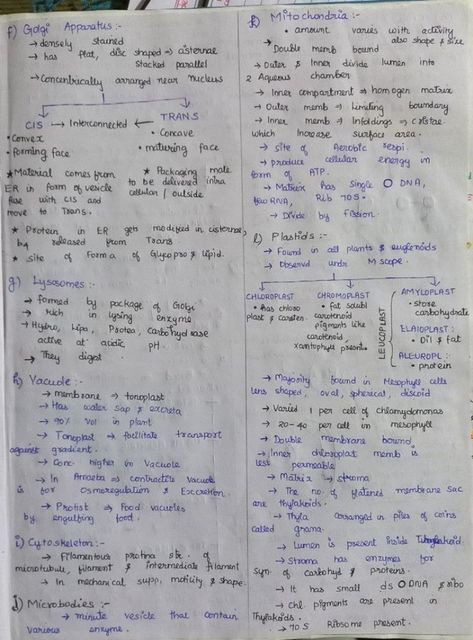 f) Golgi Apparatus :-
→ densely stained
→ has flat, disc shaped → cisternae
stacked parallel
→ Concentrically arranged near nucleus
CIS → Interconnected ← TRANS
• Convex
• Forming face
• Concave
• maturing face
★ Material comes from
ER in form of vesicle
fuse with CIS and
move to Trans.
★ Packaging mate
to be delivered intra
cellular / outside
★ Protein in ER gets modified in cisternae,
by released from Trans
★ site of Forma of Glycopro & lipid.
g) Lysosomes :-
→ formed by package of Golgi
→ rich in lysing enzyme
→ Hydro, Lipa, Protea, Carbohydrase
active at acidic pH.
→ They digest
h) Vacuole :-
→ membrane → tonoplast
→ Has water sap & excreta
→ 90% vol in plant
→ Tonoplast → facilitate transport
against gradient.
→ Conc higher in vacuole
→ In Amoeba → contractile vacuole
is for Osmoregulation & Excretion.
→ Protist → Food vacuoles
by engulfing food.
i) Cytoskeleton :-
→ Filamentous protina str. of
microtubule, filament & intermediate filament
→ In mechanical supp, motility & shape.
j) Microbodies :-
→ minute vesicle that contain
various enzyme.
k) Mitochondria :-
• amount varies with activity
also shape & size
→ Double memb bound
→ Outer & Inner divide lumen into
2 Aqueous chamber
→ Inner compartment → homogen matrix
→ Outer memb → limiting boundary
→ Inner memb → Infoldings → cristae
which increase surface area.
→ site of Aerobic respi.
→ produce cellular energy in
form of ATP.
→ Matrix has single O DNA,
few RNA, Rib 70S.
→ Divide by fission.
l) Plastids :-
→ Found in all plants & euglenoids
→ Observed undr M scope.
CHLOROPLAST
• has chloro
plast & caroten.
CHROMOPLAST
• fat solubl
carotenoid
pigments like
carotenoid,
xanthophyll present.
LEUCOPLAST
AMYLOPLAST
• store
carbohydrate
ELAIOPLAST :
• Oil & fat
ALEUROPL :
• protein
→ Majority bound in Mesophyll cells
lens shaped, oval, spherical, discoid
→ Varied 1 per cell of chlamydomonas
→ 20-40 per cell in mesophyll
→ Double membrane bound
→ Inner chloroplast memb is
less permeable
→ Matrix → stroma
→ The no. of flatened membrane sac
are thylakoids.
→ Thyla arranged in piles of coins
called grana.
→ Lumen is present inside Thylakoid
→ Stroma has enzymes for
syn. of carbohyd & proteins.
→ It has small ds O DNA & ribo
→ chl. pigments are present in
Thylakoids.
→ 70 S Ribosome present.